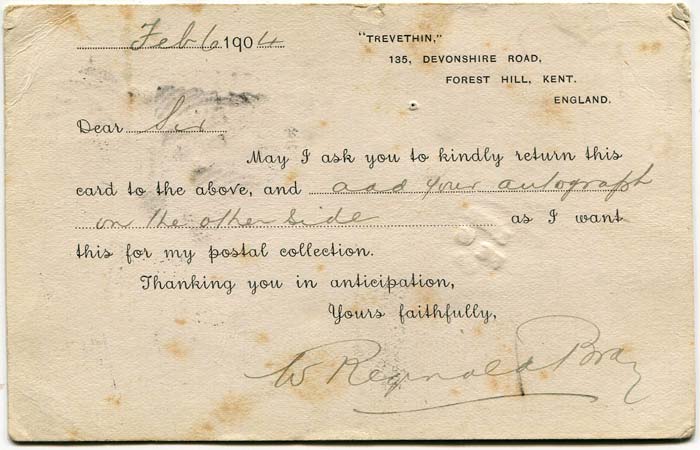 Feb 6 1904
"TREVETHIN,"
135, DEVONSHIRE ROAD,
FOREST HILL, KENT.
ENGLAND.
Dear Sir
May I ask you to kindly return this
card to the above, and add your autograph
on the other side as I want
this for my postal collection.
Thanking you in anticipation,
Yours faithfully,
W Reginald Bray